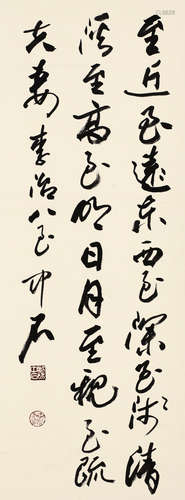 至近至遠东西至深至浅清
溪至高至明日月至親至疏
夫妻 李冶八至 中石